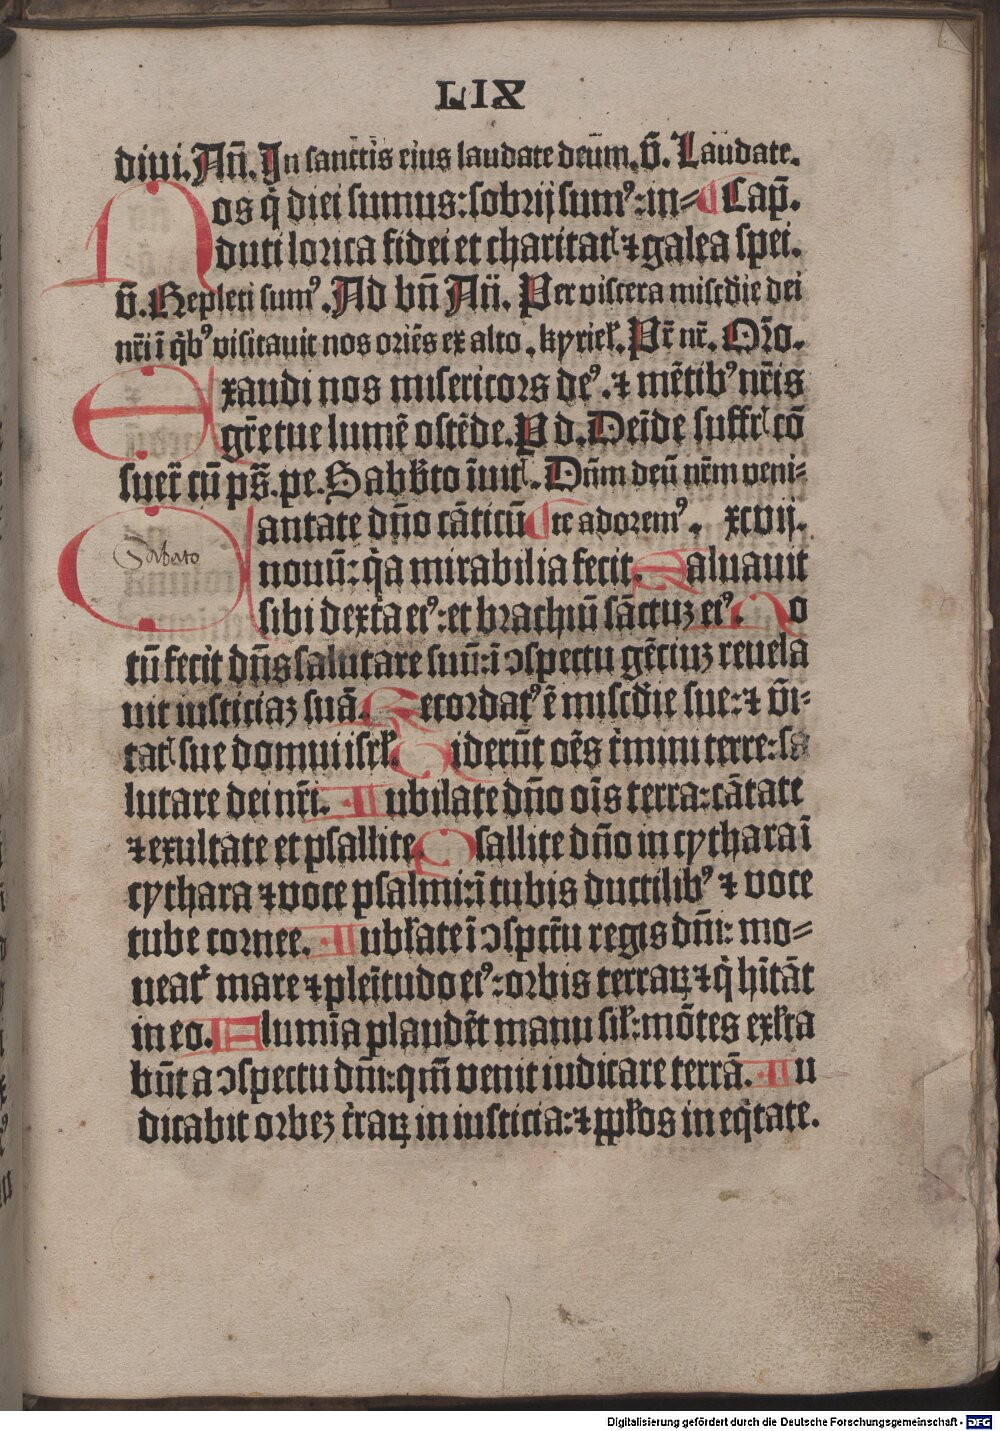 LIX
diui. Añ. In sanctis eius laudate deūm. v̄. Laudate.
Nos q̇ diei sumus: sobrij sumꝰ: in= Cap̄.
duti lorica fidei et charitatꝭ ⁊ galea spei.
v̄. Repleti sumꝰ. Ad bn̄ Añ. Per viscera miscd̄ie dei
nr̄i ī q̇bꝰ visitauit nos oriēs ex alto. kyriel̄. Pr̄ nr̄. Orō.
Exaudi nos misericors deꝰ. ⁊ mētibꝰ nr̄is
gr̄e tue lumē ostēde. P d. Deīde suffrꝭ cō
suet̄ cū ps̄. pe. Sabb̄to īuitꝭ. Dn̄m deū nr̄m veni=
Cantate dn̄o cāticū te adoremꝰ. xcvij.
Sabato
nouū: q̇a mirabilia fecit. Saluauit
sibi dext̄a eiꝰ: et brachiū sāctuz eiꝰ. No
tū fecit dn̄s salutare suū: ī ↄspectu gētiuz reuela
uit iusticiaz suā. Recordatꝰ ē miscd̄ie sue: ⁊ v̄i-
tatꝭ sue domui isrl̄. Viderūt oēs t̄mini terre: sa
lutare dei nr̄i. Iubilate dn̄o oīs terra: cātate
⁊ exultate et psallite. Psallite dn̄o in cythara ī
cythara ⁊ voce psalmi: ī tubis ductilibꝰ ⁊ voce
tube cornee. Iubl̄ate ī ↄspc̄tu regis dn̄i: mo=
ueat᷑ mare ⁊ pleītudo eiꝰ: orbis terraꝝ ⁊ q̇ hītāt
in eo. Flumīa plaudēt manu sil̄: mōtes exl̄ta
būt a ↄspectu dn̄i: qm̄ venit iudicare terrā. Iu
dicabit orbez t̄raꝝ in iusticia: ⁊ ppl̄os in eq̇tate.
Digitalisierung gefördert durch die Deutsche Forschungsgemeinschaft - DFG